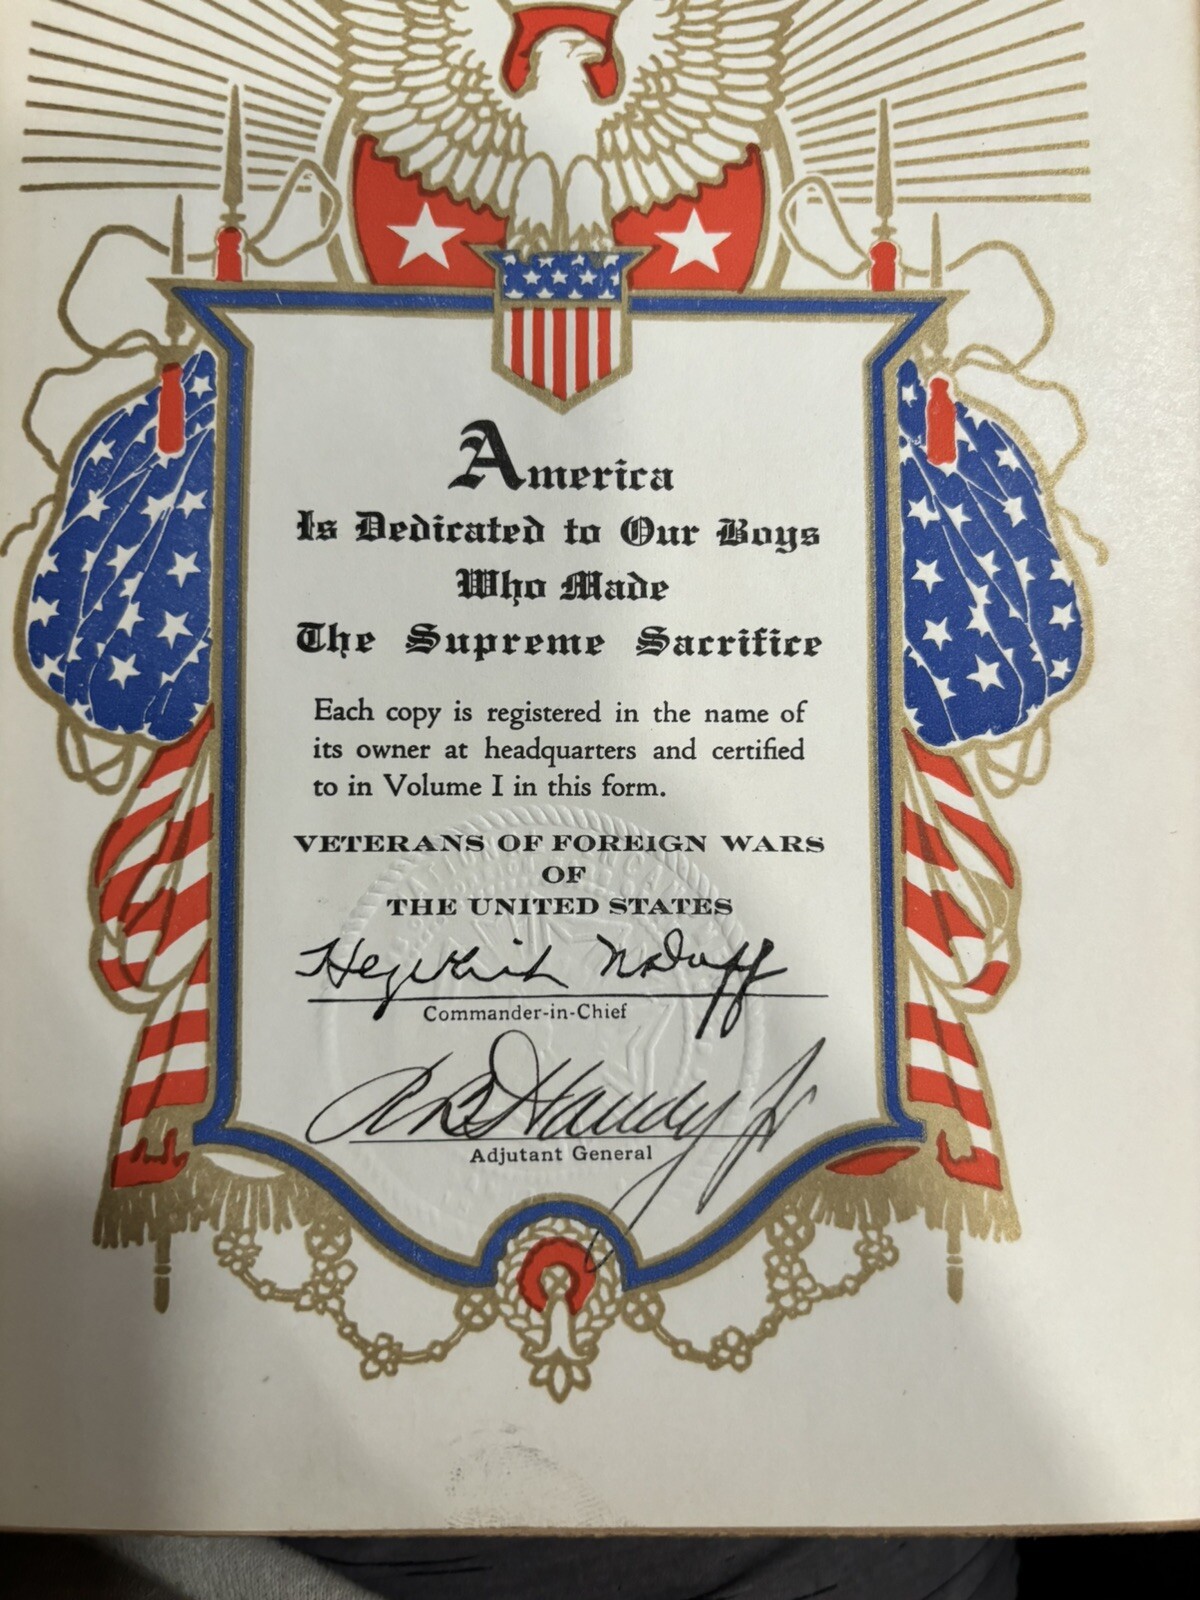 America
Is Dedicated to Our Boys
Who Made
The Supreme Sacrifice
Each copy is registered in the name of
its owner at headquarters and certified
to in Volume I in this form.
VETERANS OF FOREIGN WARS
OF
THE UNITED STATES
Hezekiah N Duff
Commander-in-Chief
R B Handy Jr
Adjutant General